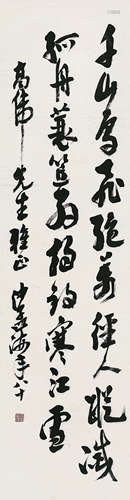 千山鳥飛絕萬徑人蹤滅
孤舟蓑笠翁獨釣寒江雪
高偉先生雅正 沙孟海年八十